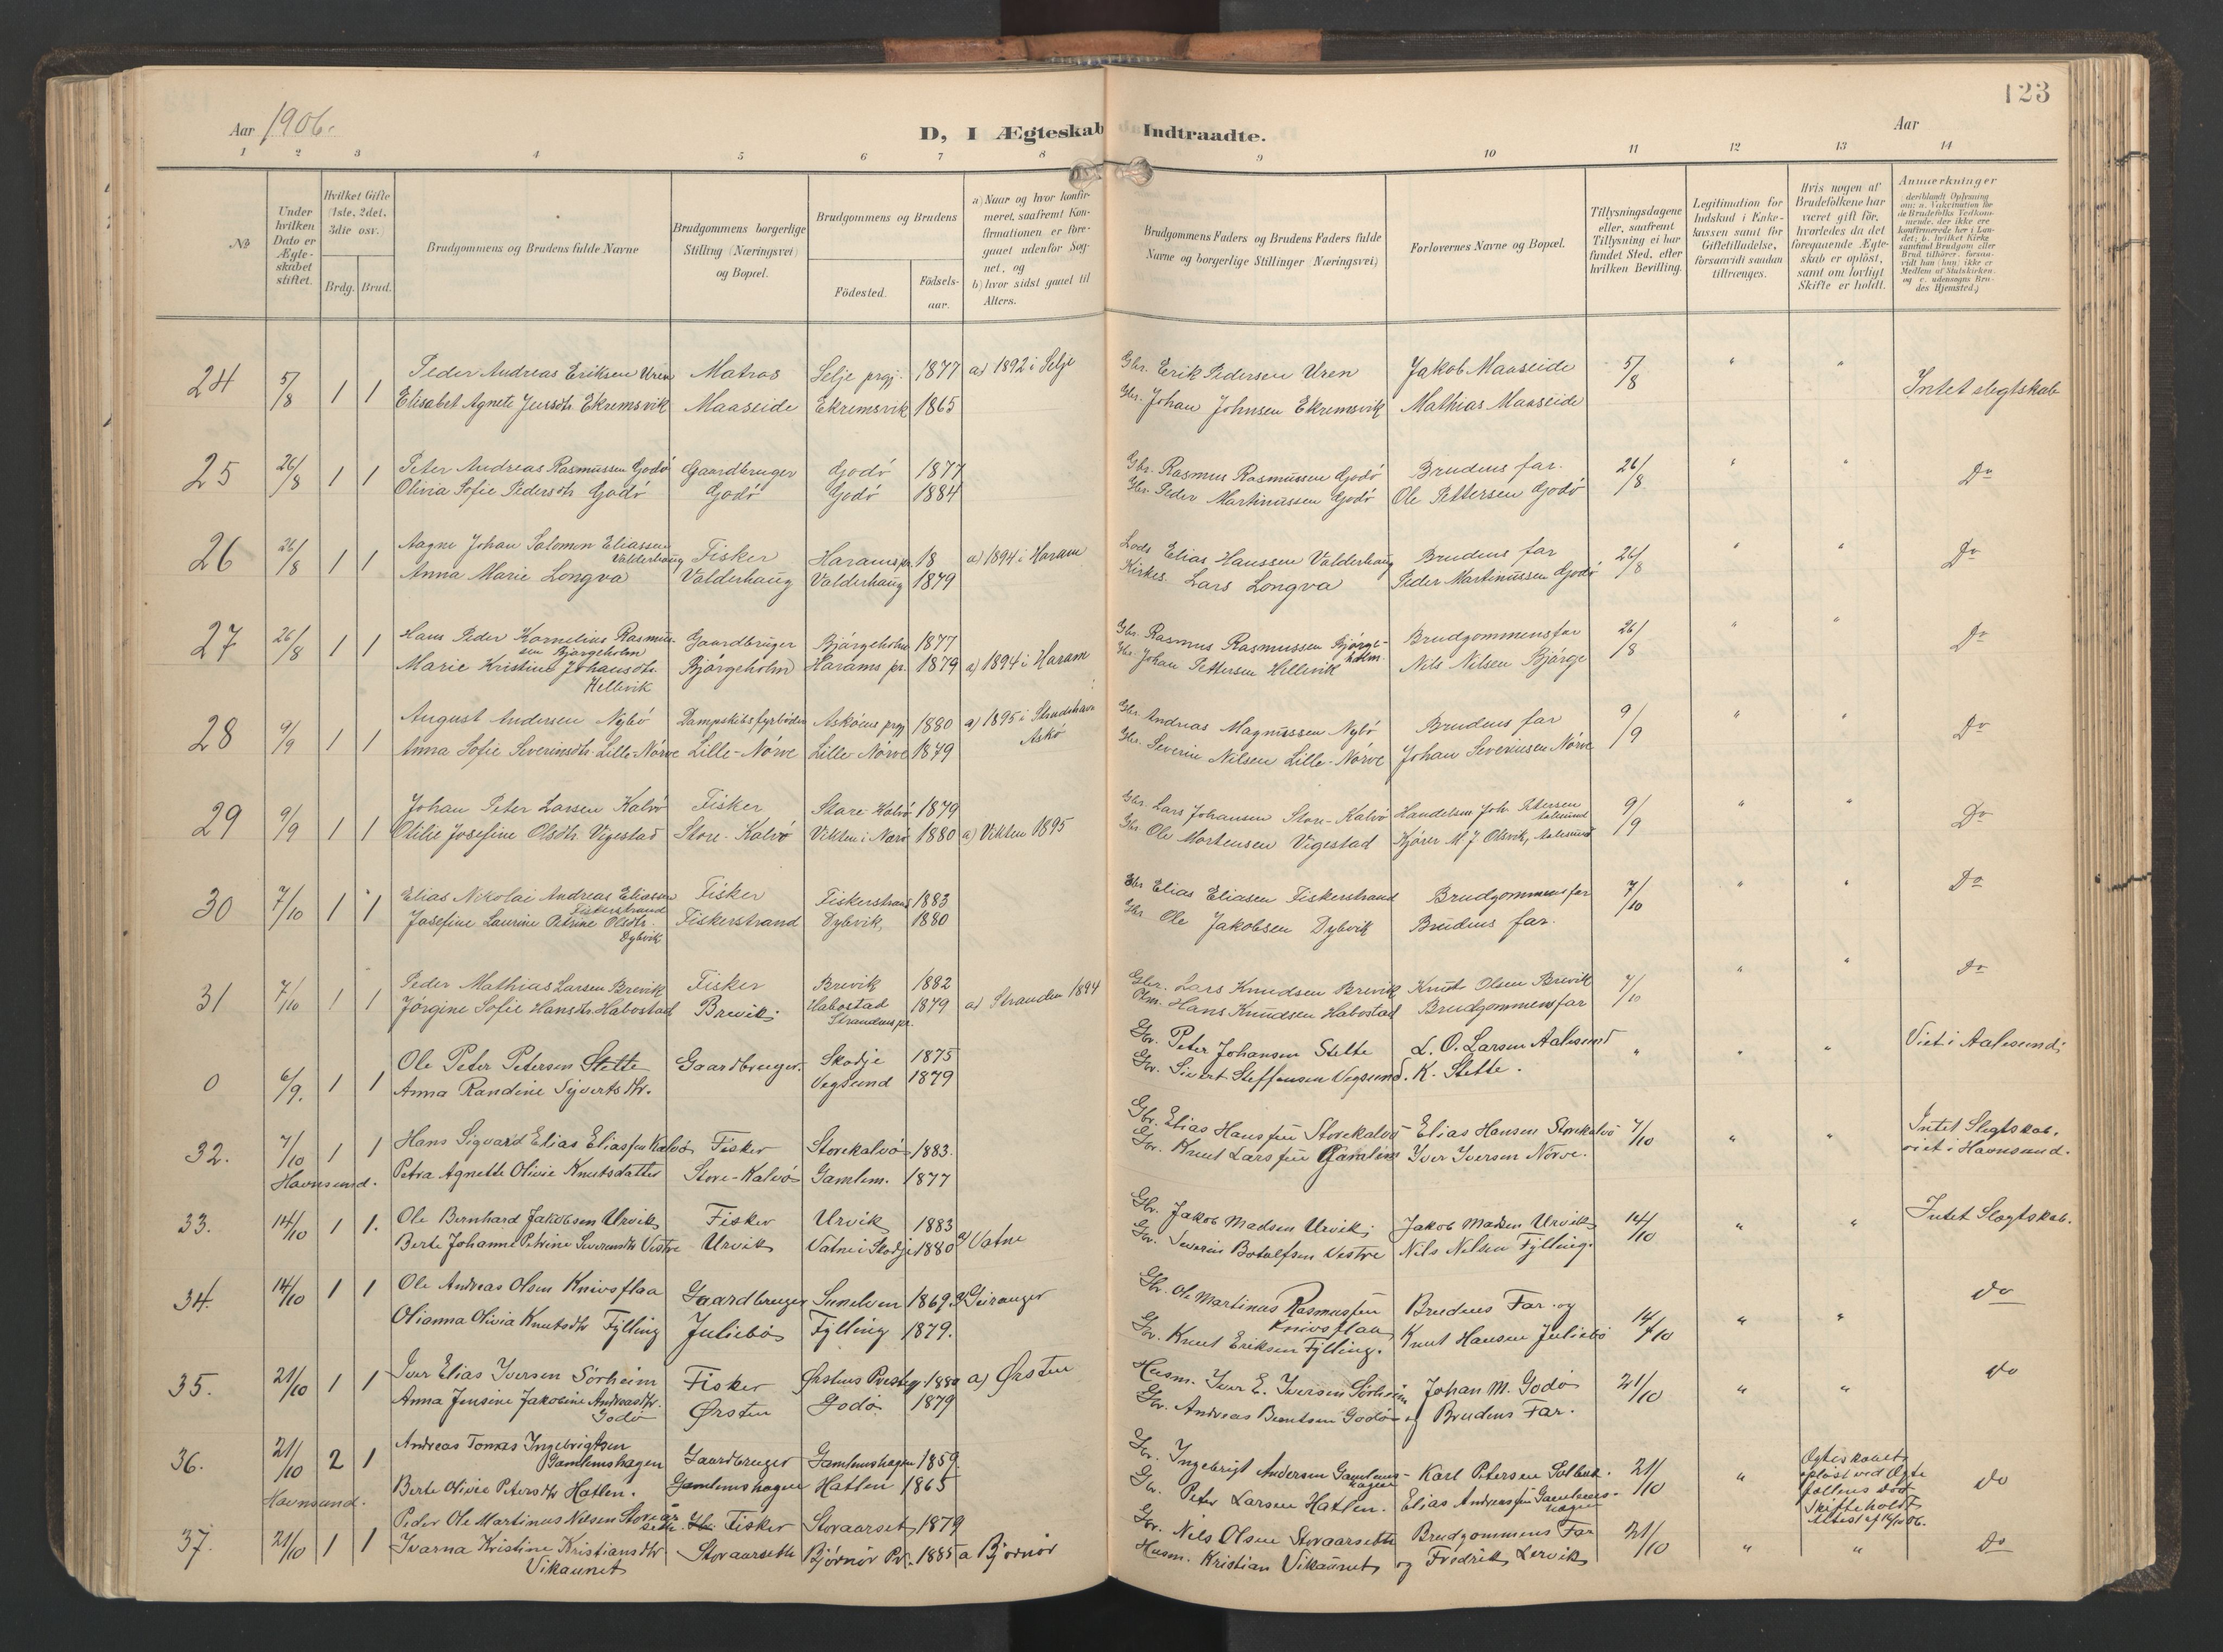 123
Aar 1906.
D, I Ægteskab Indtraadte.
Aar
1 2 3 4 5 6 7 8 9 10 11 12 13 14
No
Under hvilken Dato er Ægteskabet stiftet.
Hvilket Gifte (1ste, 2det, 3die osv.)
Brdg. Brud.
Brudgommens og Brudens fulde Navne
Brudgommens borgerlige Stilling (Næringsvei) og Bopæl.
Brudgommens og Brudens
Födested.
Födselsaar.
a) Naar og hvor konfirmeret, saafremt Konfirmationen er foregaaet udenfor Sognet, og
b) hvor sidst gaaet til Alters.
Brudgommens Faders og Brudens Faders fulde Navne og borgerlige Stillinger (Næringsvei)
Forlovernes Navne og Bopæl.
Tillysningsdagene eller, saafremt Tillysning ei har fundet Sted, efter hvilken Bevilling.
Legitimation for Indskud i Enkekassen samt for Giftetilladelse, forsaavidt saadan tiltrænges.
Hvis nogen af Brudefolkene har været gift för, hvorledes da det foregaaende Ægteskab er oplöst, samt om lovligt Skifte er holdt.
Anmerkninger
24 5/8 1 1 Peder Andreas Eriksen Uren Matros Selje prgj. 1877 a) 1892 i Selje Gbr. Erik Pedersen Uren Jakob Maaseide 5/8 " "
Elisabet Agnete Jensdtr. Ekremsvik Maaseide Ekremsvik 1865 Gbr. Johan Johnsen Ekremsvik Mathias Maaseide Intet slegtskab
25 26/8 1 1 Peter Andreas Rasmussen Godö Gaardbruger Godö 1877 Gbr. Rasmus Rasmussen Godö Brudens far. 26/8 " " Do
Olivia Sofie Pedersdtr Godö Godö Godö 1884 Gbr. Peder Martinussen Godö Ole Pettersen Godö
26 26/8 1 1 Aagne Johan Salomon Eliassen Valderhaug Fisker Harams pr. 18 a) 1894 i Haram Lods Elias Hanssen Valderhaug Brudens far 26/8 " " Do
Anna Marie Longva Valderhaug Valderhaug 1879 Kirkes. Lars Longva Peder Martinussen Godö
27 26/8 1 1 Hans Peder Kornelius Rasmussen Bjørgeholm Gaardbruger Bjørgeholm 1877 Gbr. Rasmus Rasmussen Bjørgeholm Brudgommens far 26/8 " " Do
Marie Kristine Johansdtr Hellevik Bjørgeholm Harams pr. 1879 a) 1894 i Haram Gbr. Johan Pettersen Hellevik Nils Nilsen Bjørge
28 9/9 1 1 August Andersen Nybö Dampskibsfyrböder Asköens prgj 1880 a) 1895 i Strudshavn Askö Gbr. Andreas Magnussen Nybö Brudens far 9/9 " " Do
Anna Sofie Severinsdtr. Lille-Nörve Lille-Nörve Lille-Nörve 1879 Gbr. Severin Nilsen Lille-Nörve Johan Severinsen Nörve
29 9/9 1 1 Johan Peter Larsen Kalvö Fisker Store Kalvö 1879 Gbr. Lars Johansen Store-Kalvö Handelsm. Joh. Petersen Aalesund 9/9 " " Do
Otilie Josefine Olsdtr. Vigestad Store-Kalvö Vikten i Nærö 1880 a) Vikten 1895 Gbr Ole Mortensen Vigestad Kjører M. J. Olsvik, Aalesund
30 7/10 1 1 Elias Nikolai Andreas Eliassen Fiskerstrand Fisker Fiskerstrand 1883 Gbr Elias Eliasen Fiskerstrand Brudgommens far 7/10 " " Do
Josefine Laurine Petrine Olsdtr. Dybvik Fiskerstrand Dybvik, 1880 Gbr. Ole Jakobsen Dybvik Brudens far.
31 7/10 1 1 Peder Mathias Larsen Brevik Fisker Brevik 1882 Gbr. Lars Knudsen Brevik Knut Olsen Brevik 7/10 " " Do
Jörgine Sofie Hansdtr. Habostad Brevik Habostad Strandens pr. 1879 a) Stranden 1894 Hans Knudsen Habostad Brudgommens far
0 6/9. 1 1 Ole Peter Petersen Stette Gaardbruger. Skodje 1875 Gbr. Peter Johansen Stette L. O. Larsen Aalesund " " " Viet i Aalesund;
Anna Randine Sjvertsdtr. Vegsund 1879 Gbr. Sivert Steffensen Vegsund. K. Stette.
32. 7/10 1 1 Hans Sigvard Elias Eliassen Kalvö Fisker Storekalvö 1883. Gbr. Elias Hanssen Storekalvö Elias Hansen Storekalvö 7/10 " " Intet Slegtskab.
Havnsund. Petra Agnethe Olivie Knutsdatter Store-Kalvö Gamlem. 1877 Gbr. Knut Larssen Gamlem Iver Iversen Nörve. viet i Havnsund.
33. 14/10 1 1. Ole Bernhard Jakobsen Urvik Fisker Urvik 1883 Gbr. Jakob Madsen Urvik; Jakob Madsen Urvik 14/10 " " Intet Slegtskab.
Berte Johanne Petrine Severinsdtr Vestre Urvik Vatne i Skodje 1880 a) Vatne Gbr. Severin Botolfsen Vestre Nils Nilsen Fylling.
34. 14/10 1 1 Ole Andreas Olsen Knivsflaa Gaardbruger Sunelven 1869 a) Geiranger Gbr. Ole Martinus Rasmussen Knivsflaa Brudens Far og 14/10 " " do
Olianna Olivia Knutsdtr Fylling Juliebö Fylling 1879. Gbr. Knut Eriksen Fylling. Knut Hansen Juliebö
35. 21/10 1 1 Iver Elias Iversen Sörheim Fisker Ørstens Prestgj. 1880 a) Ørsten Husm. Iver E. Iversen Sörheim Johan M. Godö 21/10 " " do
Anna Jensine Jakobine Andreasdtr. Godö Ørsten Godö 1879 Gbr. Andreas Berntsen Godö og Brudens Far.
36. 21/10 2 1 Andreas Tomas Ingebrigtsen Gamlemshagen Gaardbruger Gamlemshagen 1859 Gbr. Ingebrigt Andersen Gamlemshagen Karl Petersen Solbak. 21/10 " Ægteskabet opløst ved Ægtefællens død Skifte holdt Attest af 18/10 06. do
Havnsund. Berte Olivie Petersdtr Hatlen. Gamlemshagen Hatlen 1865 Gbr. Peter Larsen Hatlen. Elias Andreassen Gamlemshagen
37. 21/10 1 1 Peder Ole Martinus Nilsen Storaarseth. Fisker Storaarset, 1879 Gbr. Nils Olsen Storaarseth Brudgommens Far 21/10 " " do
Ivarna Kristine Kristiansdtr Vikaunet Storaarseth Björnör Pr. 1885 a Bjørnør Husm. Kristian Vikaunet og Fredrik Lervik